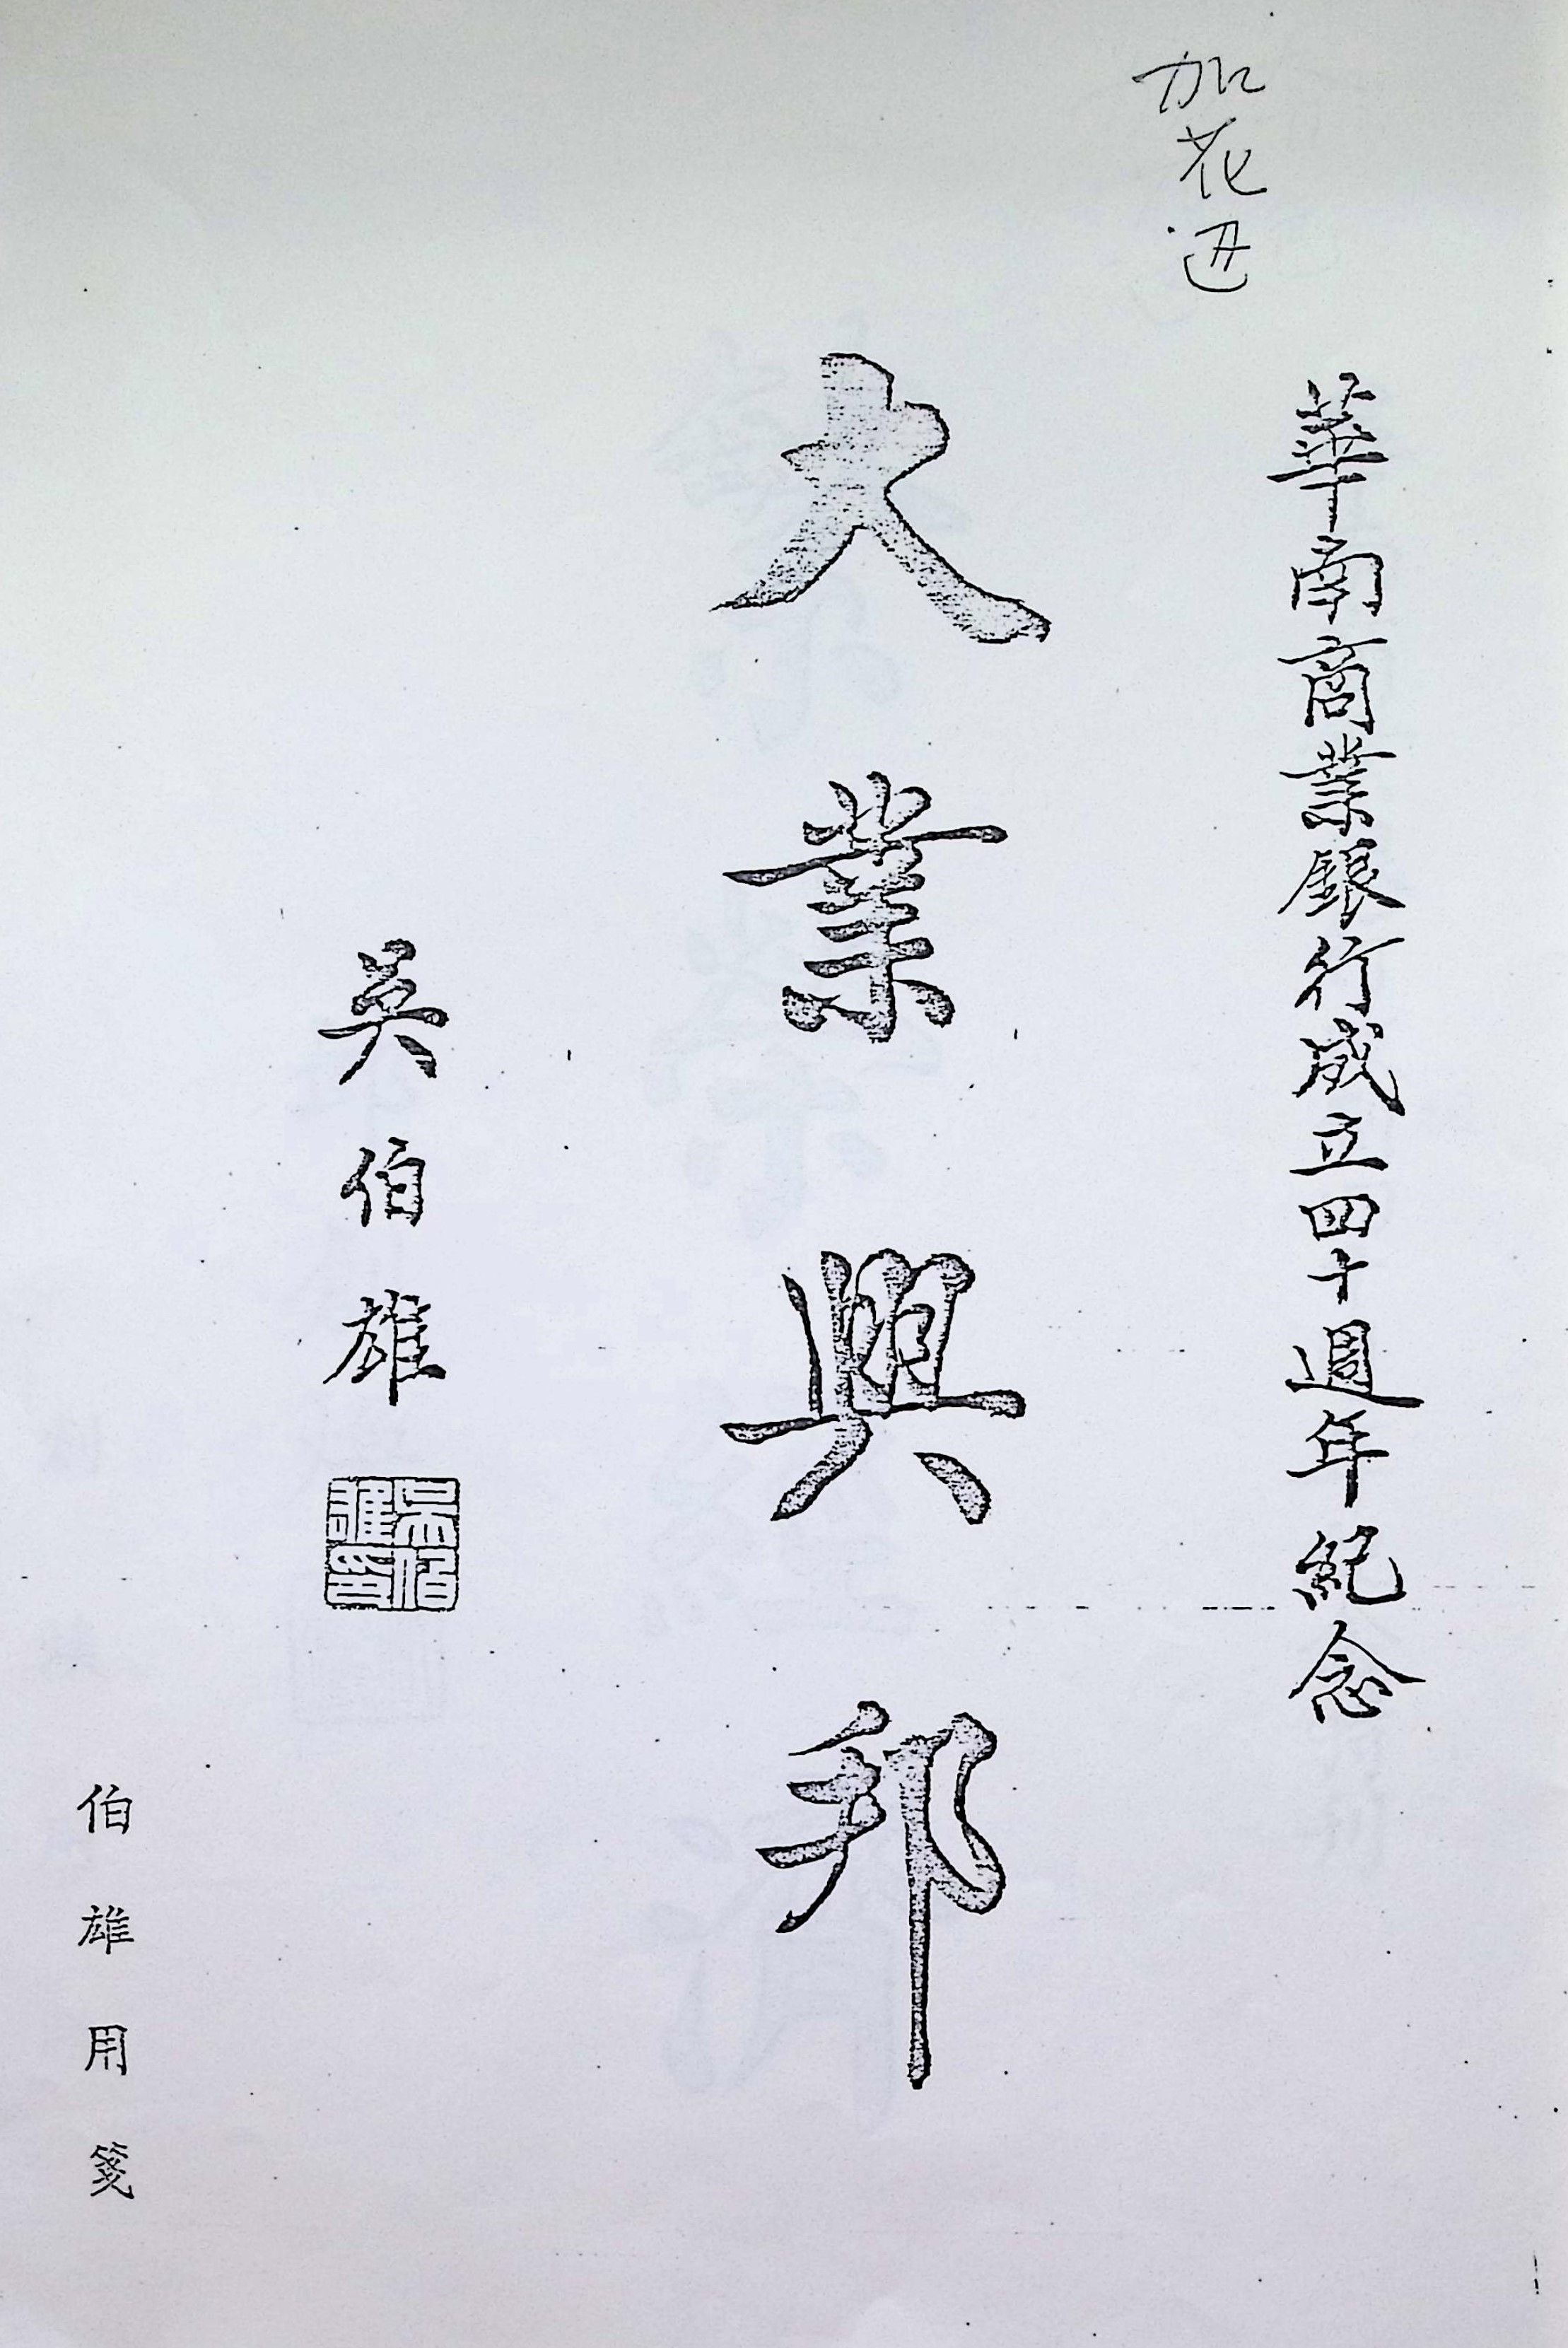 加花邊
華南商業銀行成立四十週年紀念
大業興邦
吳伯雄
吳伯雄印
伯雄用箋